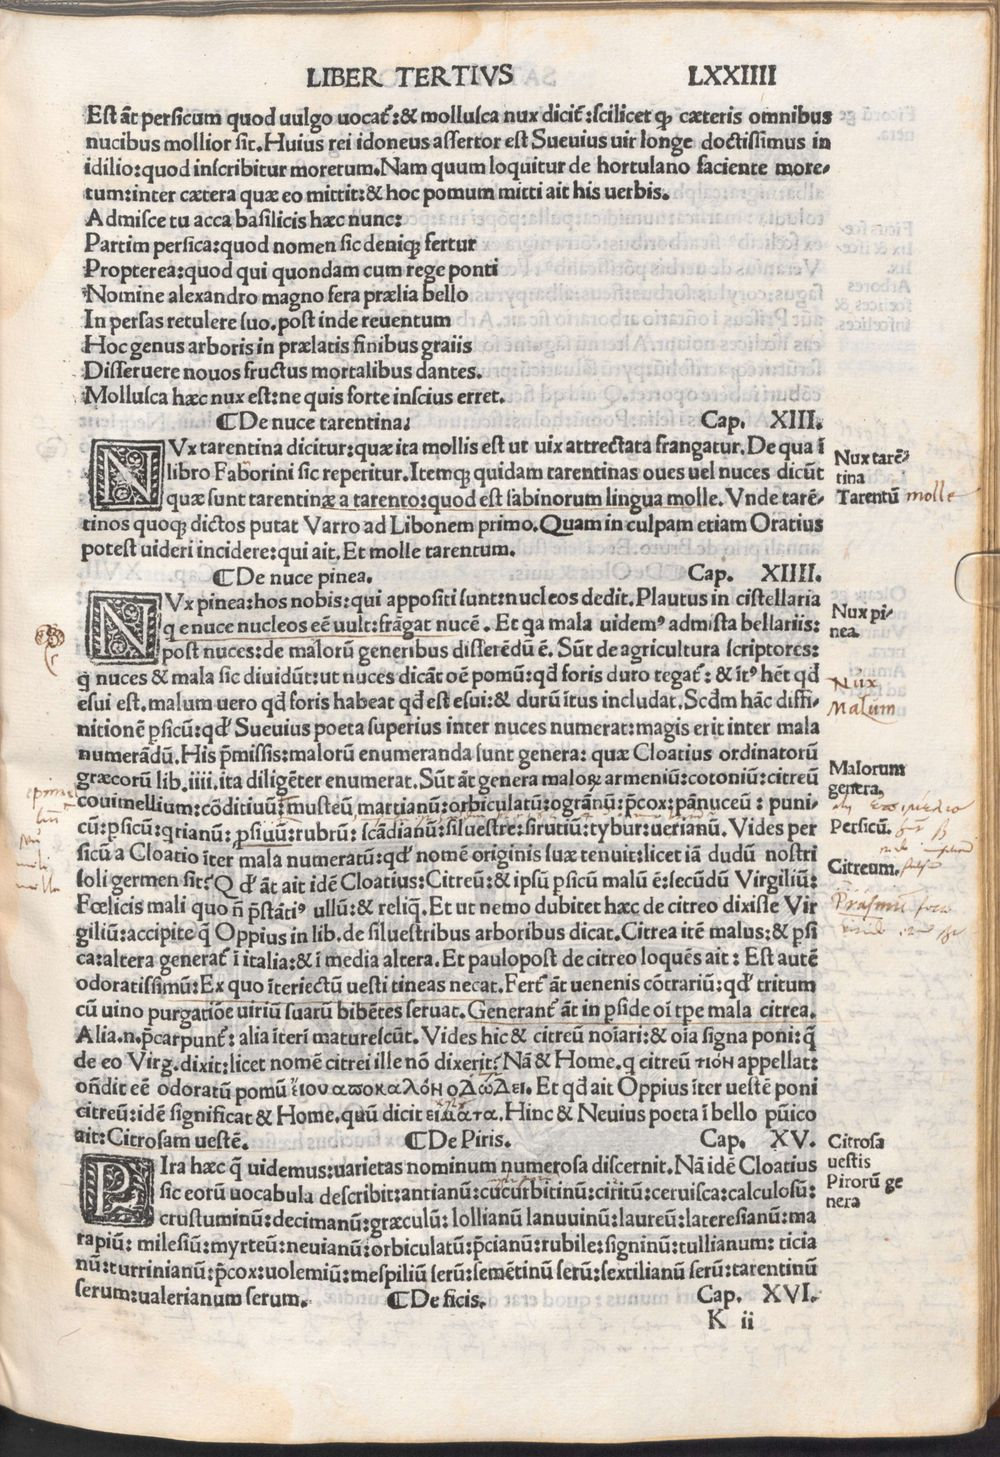 LIBER TERTIVS LXXIIII
Est āt persicum quod uulgo uocat̃:& mollusca nux dicit̃:scilicet qꝫ cæteris omnibus
nucibus mollior sit.Huius rei idoneus assertor est Sueuius uir longe doctissimus in
idilio:quod inscribitur moretum.Nam quum loquitur de hortulano faciente more-
tum:inter cætera quæ eo mittit:& hoc pomum mitti ait his uerbis.
Admisce tu acca basilicis hæc nunc:
Partim persica:quod nomen sic deniqꝫ fertur
Propterea:quod qui quondam cum rege ponti
Nomine alexandro magno fera prælia bello
In persas retulere suo.post inde reuentum
Hoc genus arboris in prælatis finibus graiis
Disseruere nouos fructus mortalibus dantes.
Mollusca hæc nux est:ne quis forte inscius erret.
¶De nuce tarentina. Cap. XIII.
NVx tarentina dicitur:quæ ita mollis est ut uix attrectata frangatur.De qua ī
libro Faborini sic reperitur.Itemqꝫ quidam tarentinas oues uel nuces dicūt
quæ sunt tarentinæ a tarento:quod est sabinorum lingua molle.Vnde tarē-
tinos quoqꝫ dictos putat Varro ad Libonem primo.Quam in culpam etiam Oratius
potest uideri incidere:qui ait.Et molle tarentum.
Nux tarē-
tina
Tarentū molle
¶De nuce pinea. Cap. XIIII.
NVx pinea:hos nobis:qui appositi sunt:nucleos dedit.Plautus in cistellaria
q e nuce nucleos eē uult:frāgat nucē. Et qa mala uidemꝰ admista bellariis:
post nuces:de malorū generibus disserēdū ē. Sūt de agricultura scriptores:
q̄ nuces & mala sic diuidūt:ut nuces dicāt oē pomū:qd̄ foris duro tegat̃: & ītꝰ hēt qd̄
esui est.malum uero qd̄ foris habeat qd̄ est esui:& durū ītus includat.Scd̄m hāc diffi-
nitionē ꝑsicū:qd̄ Sueuius poeta superius inter nuces numerat:magis erit inter mala
numerādū.His p̄missis:malorū enumeranda sunt genera: quæ Cloatius ordinatorū
græcorū lib.iiii.ita diligēter enumerat.Sūt āt genera maloꝝ armeniū:cotoniū:citreū
couimellium:cōditiuū:musteū,martianū:orbiculatū:ogranū:p̄cox:pānuceū: puni-
cū:ꝑsicū:qrianū:ꝓsiuū:rubrū:scādianū:siluestre:sirutiū:tybur:uerianū.Vides per
sicū a Cloatio īter mala numeratū:qd̄ nomē originis suæ tenuit:licet iā dudū nostri
soli germen sit?Q d̄ āt ait idē Cloatius:Citreū:& ipsū ꝑsicū malū ē:secūdū Virgiliū:
Fœlicis mali quo ñ p̄stātiꝰ ullū:& reliq̄.Et ut nemo dubitet hæc de citreo dixisse Vir
giliū:accipite q̄ Oppius in lib.de siluestribus arboribus dicat.Citrea itē malus:& ꝑsi
ca:altera generat̃ ī italia:& ī media altera.Et paulopost de citreo loquēs ait: Est autē
odoratissimū:Ex quo īteriectū uesti tineas necat.Fert̃ āt uenenis cōtrariū:qd̄ tritum
cū uino purgatiōe uiriū suarū bibētes seruat.Generant̃ āt in ꝑside oī tꝑe mala citrea.
Alia.n.p̄carpunt̃: alia īteri maturescūt. Vides hic & citreū noīari:& oīa signa poni:q̄
de eo Virg.dixit:licet nomē citrei ille nō dixerit?Nā & Home.q citreū τιόн appellat:
oñdit eē odoratū pomū ἔιον αποκαλόн οΔώΔει. Et qd̄ ait Oppius īter uestē poni
citreū:idē significat & Home.quū dicit εἵματα.Hinc & Neuius poeta ī bello pūico
ait:Citrosam uestē. ¶De Piris. Cap. XV.
Nux pi-
nea.
Nux
Malum
Malorum
genera.
Persicū.
Citreum.
Citrosa
uestis
PIra hæc q̄ uidemus:uarietas nominum numerosa discernit.Nā idē Cloatius
sic eorū uocabula describit:antianū:cucurbitinū:ciritū:ceruisca:calculosū:
crustuminū:decimanū:græculū: lollianū lanuuinū:laureū:lateresianū:ma
rapiū: milesiū:myrteū:neuianū:orbiculatū:p̄cianū:rubile:signinū:tullianum: ticia
nū:turrinianū:p̄cox:uolemiū:mespiliū serū:semētinū serū:sextilianū serū:tarentinū
serum:ualerianum serum. ¶De ficis. Cap. XVI.
Pirorū ge
nera
K ii